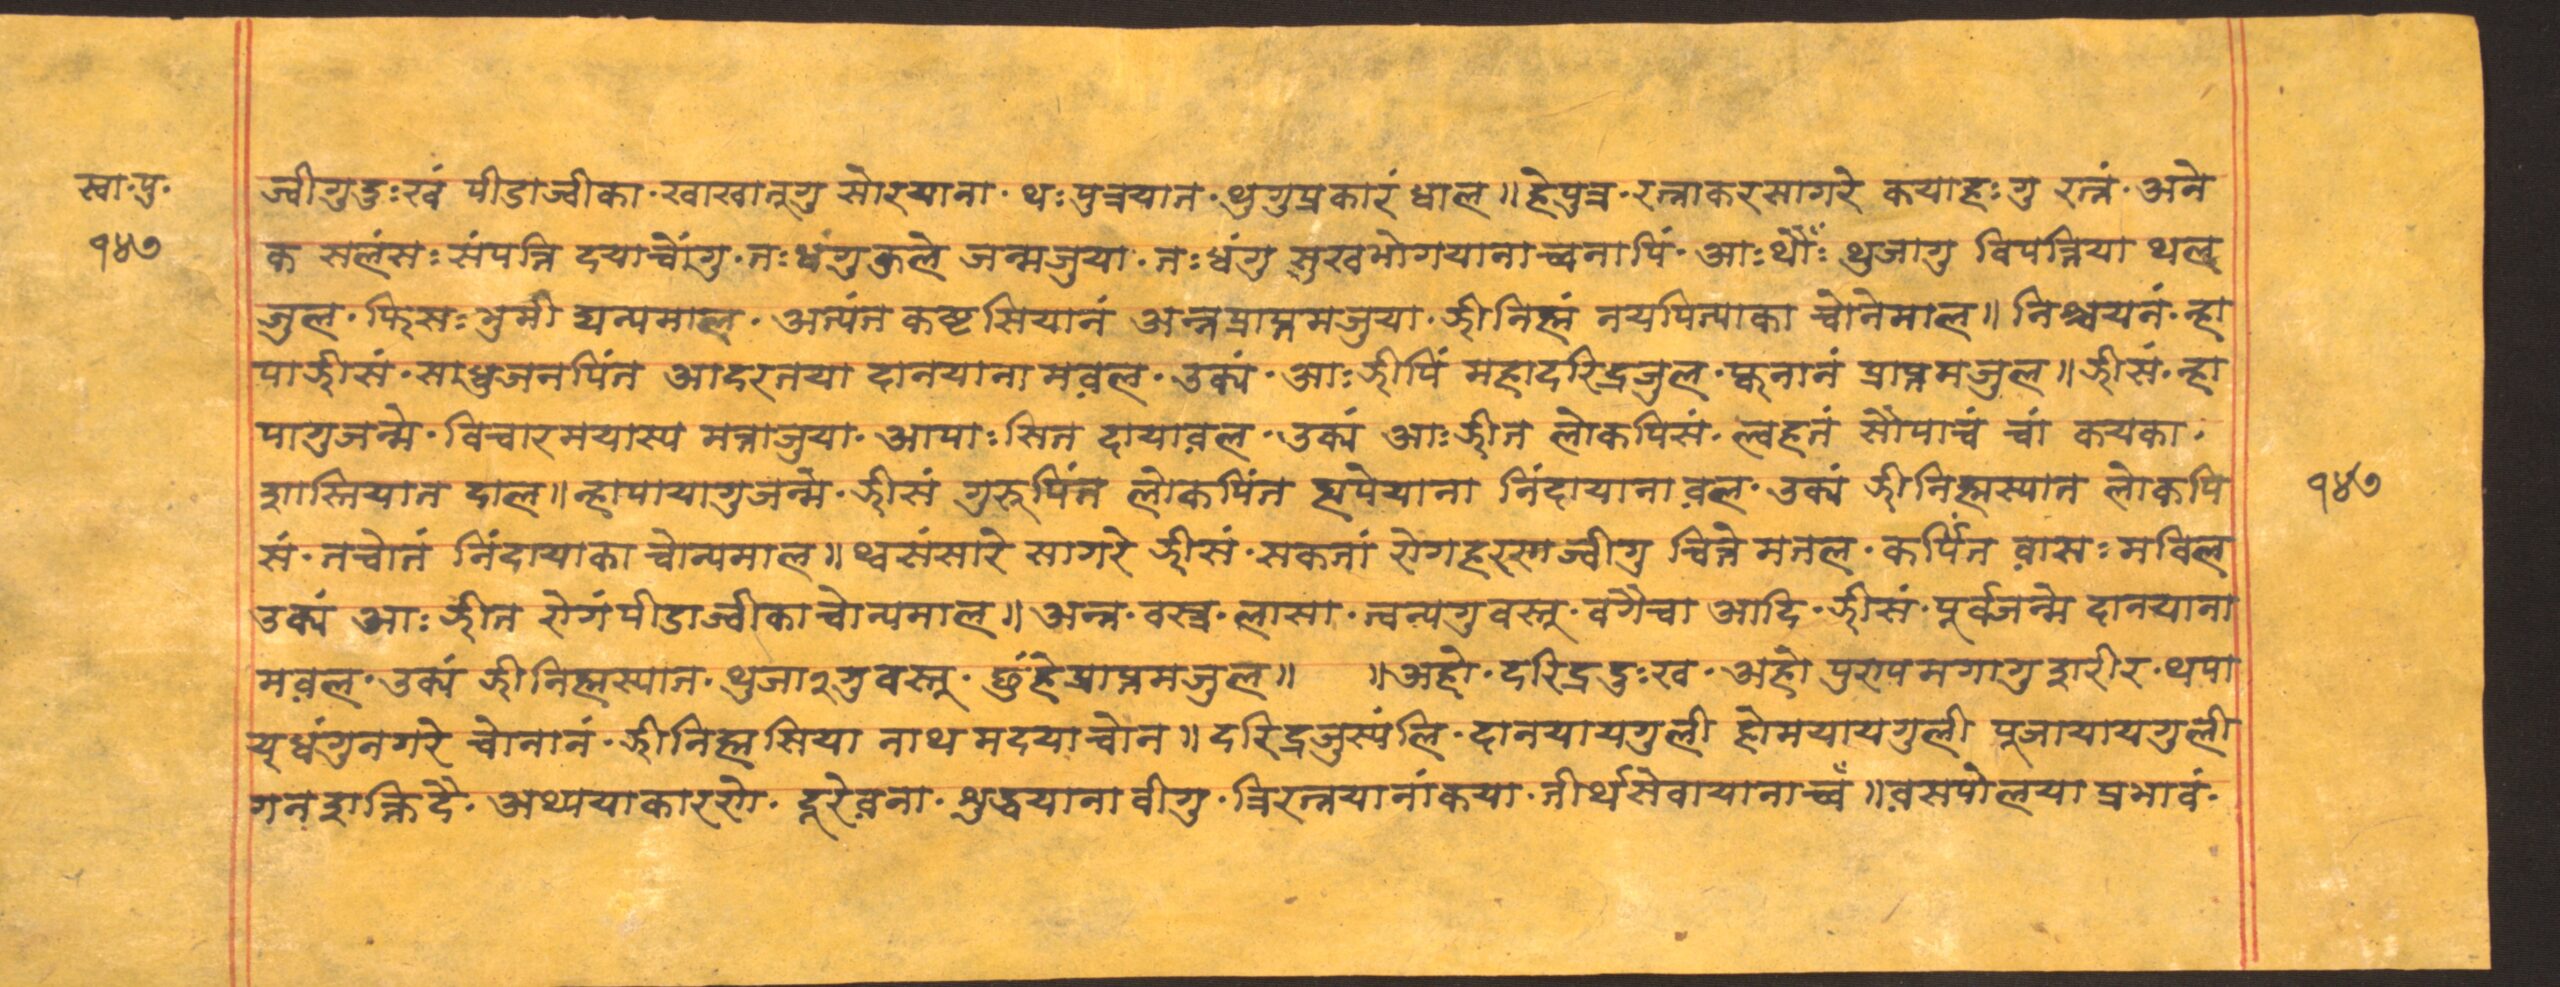 स्वा.पु.
१४७
ज्वीगु दुःखं पीडाज्वीका.खाखानुगु सोरयाना.थःपुत्रयात.थुगुप्रकारं धाल॥हेपुत्र.रत्नाकरसागरे कयाहःगु रत्नं.अने
क सलंसः संपत्ति दयाच्वोंगु.तःधंगुकुले जन्मजुया.तःधंगु सुखभोगयानाच्वनापिं.आःथौंः थुजागु विपत्तिया थल
जुल.फिसः भुमी द्यन्यमाल.अत्यंत कष्टसियानं अन्नप्राप्तमजुया.झीनिह्मं नयपित्याका च्वोनेमाल॥निश्चयनं.न्हा
पाझीसं.साधुजनपिंत आदरतया दानयाना मव़ल.उक्यं.आःझीपिं महादरिद्रजुल.फ्वनानं प्राप्तमजुल॥झीसं.न्हा
पागुजन्मे.विचारमयास्य मत्ताजुया.आपाः सित दायाव़ल.उक्यं आःझीत लोकपिसं.ल्वहतं सोपाच्वं च्वां कयका.
शास्तियात दाल॥न्हापायागुजन्मे.झीसं गुरुपिंत लोकपिंत ह्यपेयाना निंदायाना व़ल.उक्यं झीनिह्मस्यात लोकपि
सं.नच्वोतं निंदायाका च्वोन्यमाल॥थ्वसंसारे सागरे झीसं.सकतां रोगहरुस्मज्वीगु चित्ते मतल.कपिंत व़ासः मविल
उक्यं आःझीत रोगं पीडाज्वीका च्वोन्यमाल॥अन्न.वस्त्र.लासा.त्वन्यगुवस्तु.वगैचा आदि.झीसं.पूर्वजन्मे दानयाना
मव़ल.उक्यं झीनिह्मस्यात.थुजा२गुवस्तु.छुंहे प्राप्तमजुल॥ ॥अहो.दरिद्रदुःख.अहो पुरुपमगागु शरीर.थपा
य्धंगुनगरे च्वोनानं.झीनिह्मसिया नाथ मदयाच्वोन॥दरिद्रजुस्यंलि.दानयायगुली होमयायगुली पूजायायगुली
गन शक्तिदै.अथ्यया कारणे.दूरेव़ना.शुद्धयानावीगु.त्रिरत्नयानांकया.तीर्थसेवायानाच्वँ॥व़सपोलया प्रभावं.
१४७